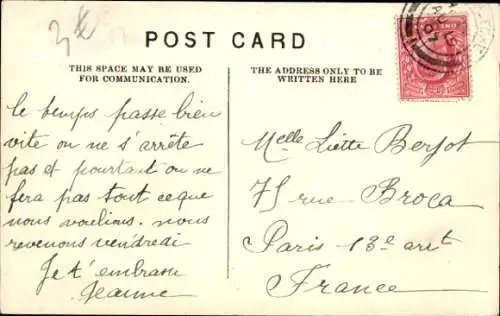 POST CARD
THIS SPACE MAY BE USED
FOR COMMUNICATION.
THE ADDRESS ONLY TO BE
WRITTEN HERE
le temps passe bien
vite on ne s'arrête
pas et pourtant on ne
fera pas tout ce que
nous voulions. nous
revenons vendredi
Je t'embrasse
Jeanne
Melle Liette Berjot
75 rue Broca
Paris 13e arrt
France